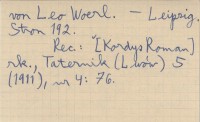 von Leo Woerl. — Leipzig.
Stron 192.
Rec: "[Kordys Roman]
rk., Taternik (Lwów) 5
(1911), nr 4: 76.